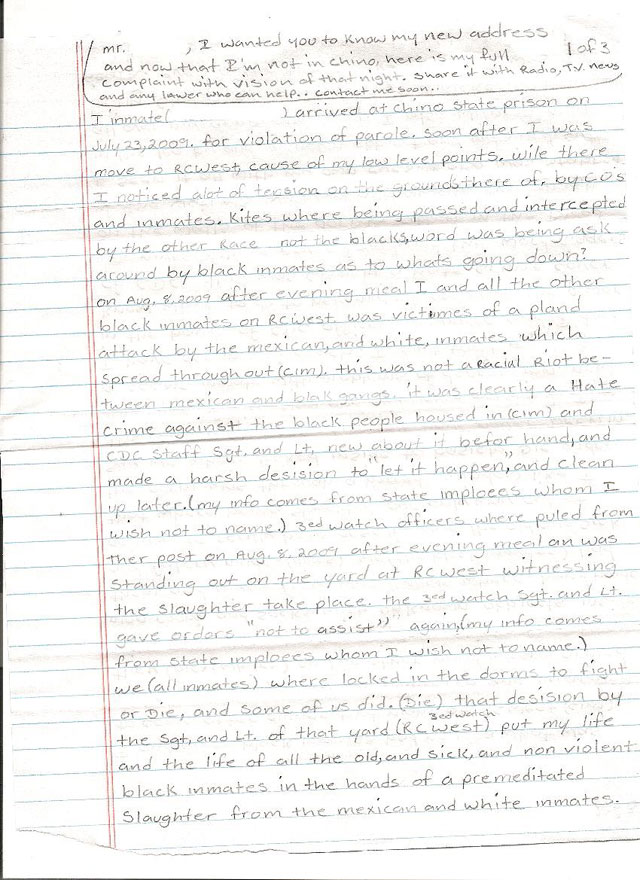 mr. , I wanted you to know my new address
and now that I'm not in chino, here is my full 1 of 3
complaint with vision of that night. share it with Radio, T.V. news
and any lawer who can help.. contact me soon..
I inmate( ) arrived at chino state prison on
July 23, 2009, for violation of parole. soon after I was
move to RCwest, cause of my low level points. wile there
I noticed alot of tension on the grounds there of, by CO's
and inmates. Kites where being passed and intercepted
by the other Race not the blacks, word was being ask
around by black inmates as to whats going down?
on Aug. 8, 2009 after evening meal I and all the other
black inmates on RCwest was victimes of a pland
attack by the mexican, and white, inmates which
spread throughout (CIM). this was not a Racial Riot be-
tween mexican and blak gangs. it was clearly a Hate
Crime against the black people housed in (CIM) and
CDC Staff Sgt. and Lt. new about it befor hand, and
made a harsh desision to "let it happen," and clean
up later. (my info comes from state imploees whom I
wish not to name.) 3ed watch officers where puled from
ther post on Aug. 8, 2009 after evening meal an was
standing out on the yard at RCwest witnessing
the slaughter take place. the 3ed watch Sgt. and Lt.
gave ordors "not to assist" again, (my info comes
from state imploees whom I wish not to name.)
we (all inmates) where locked in the dorms to fight
or Die, and some of us did. (Die) that desision by
the Sgt, and Lt. of that yard (RC west) 3ed watch put my life
and the life of all the old, and sick, and non violent
black inmates in the hands of a premeditated
Slaughter from the mexican and white inmates.